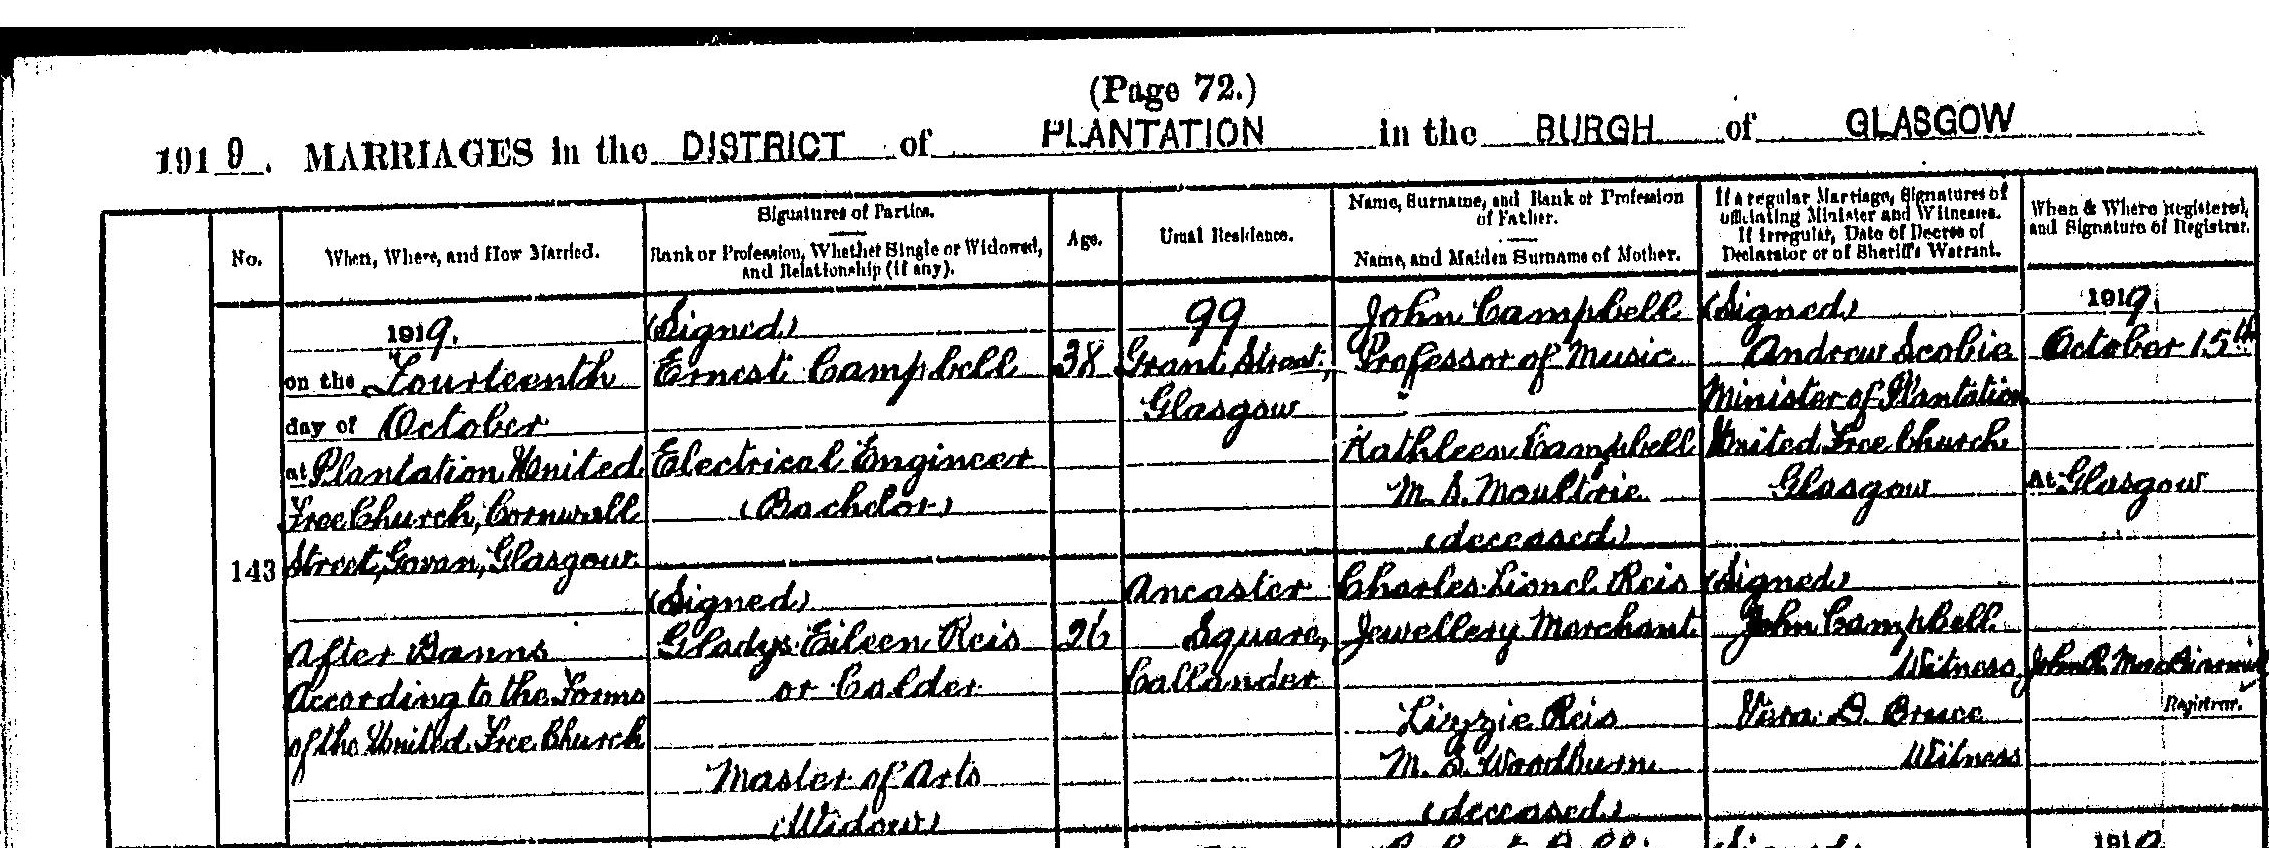 (Page 72.)
1919. MARRIAGES in the DISTRICT of PLANTATION in the BURGH of GLASGOW
No.
When, Where, and How Married.
Signatures of Parties.
Rank or Profession, Whether Single or Widowed,
and Relationship (if any).
Age.
Usual Residence.
Name, Surname, and Rank or Profession
of Father.
Name, and Maiden Surname of Mother.
If a regular Marriage, Signatures of
officiating Minister and Witnesses.
If irregular, Date of Decree of
Declarator or of Sheriff's Warrant.
When & Where Registered,
and Signature of Registrar.
143
1919.
on the Fourteenth
day of October
at Plantation United
Free Church, Cornwall
Street, Govan, Glasgow
After Banns
According to the Forms
of the United Free Church
(Signed)
Ernest Campbell
Electrical Engineer
(Bachelor)
(Signed)
Gladys Eileen Reis
or Calder
Master of Arts
(Widow)
38
26
99
Grant Street,
Glasgow
Ancaster
Square,
Callander
John Campbell
Professor of Music
Kathleen Campbell
M.S. Moultrie
(deceased)
Charles Lionel Reis
Jewellery Merchant
Lizzie Reis
M.S. Woodburn
(deceased)
(Signed)
Andrew Scobie
Minister of Plantation
United Free Church
Glasgow
(Signed)
John Campbell
Witness
Vera D. Bruce
Witness
1919.
October 15th
At Glasgow
John
Registrar.
1919